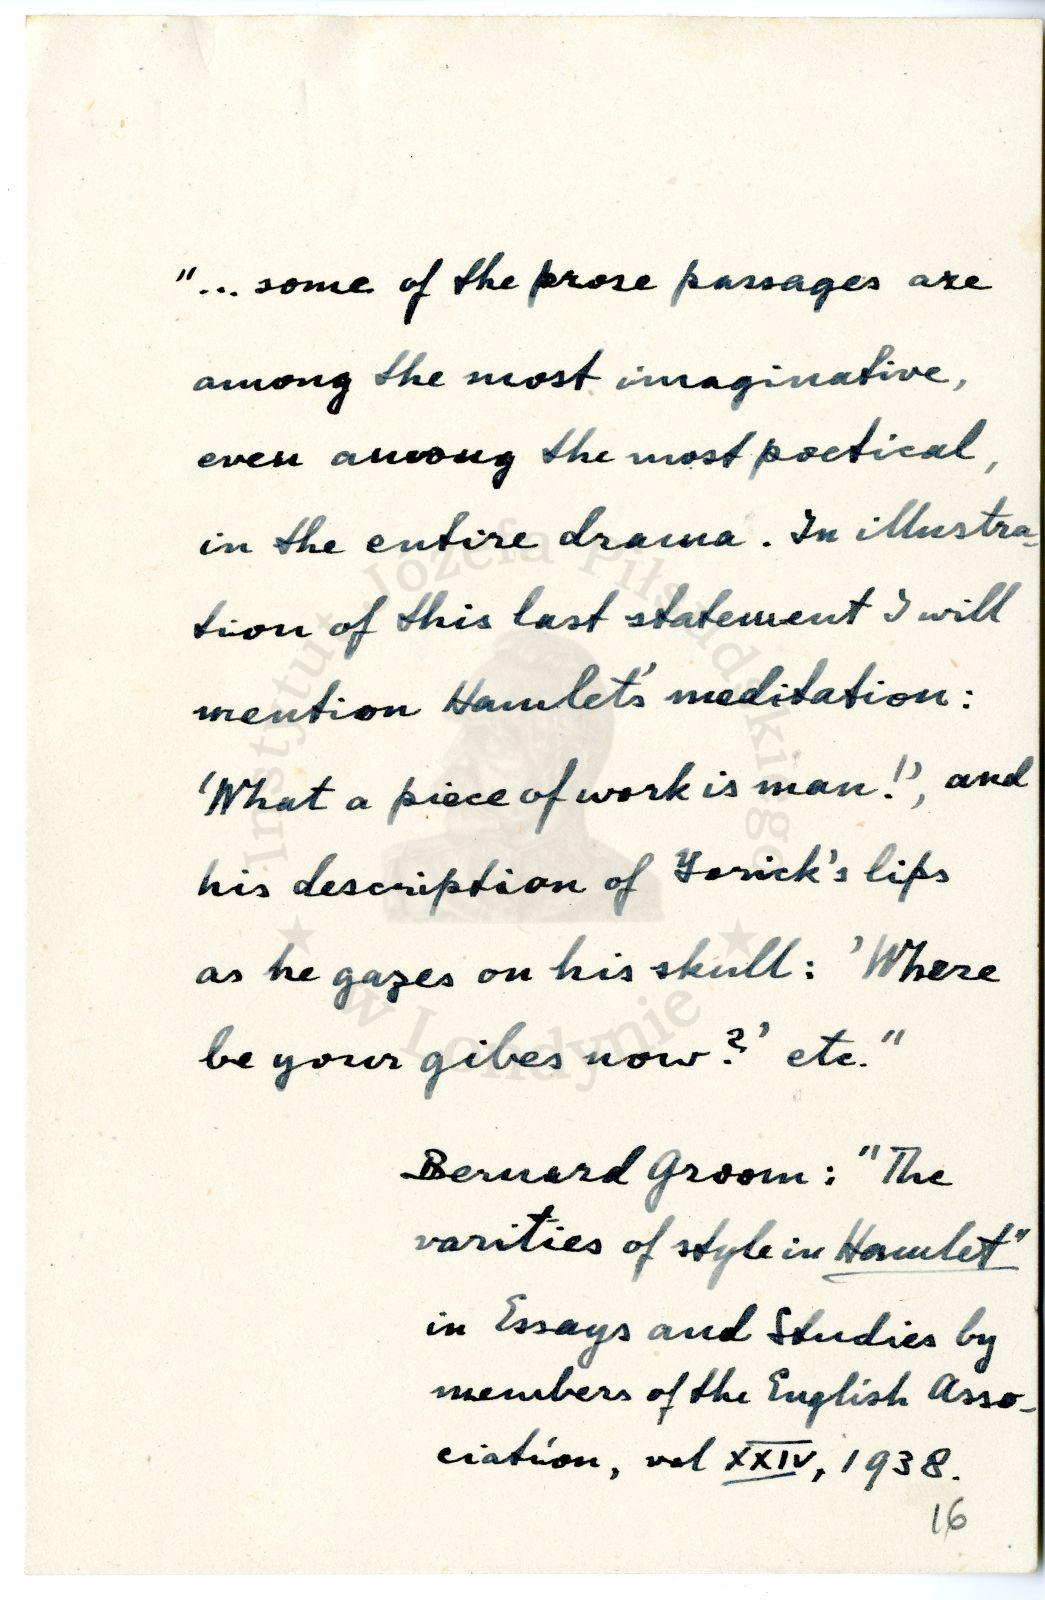 "... some of the prose passages are
among the most imaginative,
even among the most poetical,
in the entire drama. In illustra-
tion of this last statement I will
mention Hamlet's meditation:
'What a piece of work is man!', and
his description of Yorick's lips
as he gazes on his skull: 'Where
be your gibes now?' etc."
Bernard Groom: "The
varities of style in Hamlet"
in Essays and Studies by
members of the English Asso-
ciation, vol XXIV, 1938.
16
Instytut Józefa Piłsudskiego
w Londynie